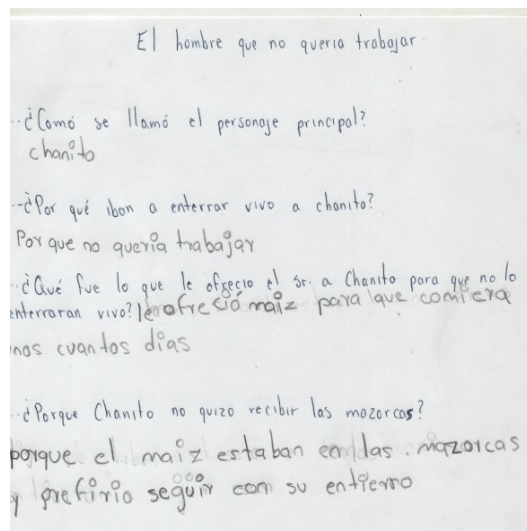 El hombre que no queria trabajar.
..¿Comó se llamó el personaje principal?
chanito
..¿Por qué iban a enterrar vivo a chanito?
Por que no queria trabajar
..¿Qué fue lo que le ofrecio el Sr. a Chanito para que no lo
enterraran vivo? le ofreció maiz para que comiera
nos cuantos dias
..¿Porque Chanito no quizo recibir las mazorcas?
porque el maiz estaban en las mazorcas
y prefirio seguir con su entierro